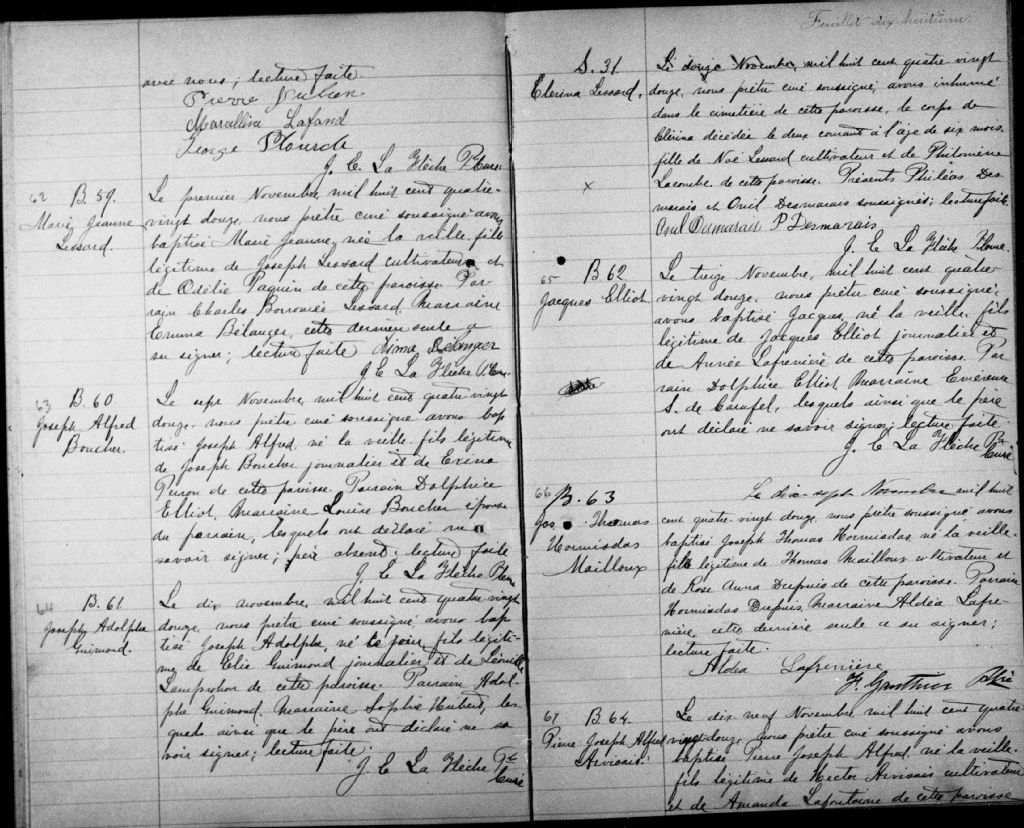 avec nous; lecture faite
Pierre
Marcellina Lafond
George Plourde
J. E. La Flèche Ptre Curé
62 B 59.
Marie Jeanne
Lessard.
Le premier Novembre, mil huit cent quatre-
vingt douze, nous prêtre curé soussigné avons
baptisé Marie Jeanne, née la veille, fille
légitime de Joseph Lessard cultivateur et
de Odélie Paquin de cette paroisse. Par-
rain Charles Borromée Lessard, Marraine
Emma Bélanger, cette dernière seule a
su signer; lecture faite Dima Bélanger
J E La Flèche Ptre Curé
63 B. 60
Joseph Alfred
Boucher.
Le sept Novembre, mil huit cent quatre vingt
douze, nous prêtre curé soussigné avons bap
tisé Joseph Alfred, né la veille, fils légitime
de Joseph Boucher journalier et de Exina
de cette paroisse. Parrain Dolphice
Elliot, Marraine Louise Boucher épouse
du parrain, lesquels ont déclaré ne
savoir signer; père absent. lecture faite
J. E La Flèche Ptre Curé
64 B. 61
Joseph Adolphe
Guimond.
Le dix novembre, mil huit cent quatre vingt
douze, nous prêtre curé soussigné avons bap
tisé Joseph Adolphe, né le jour, fils légiti-
me de Elie Guimond journalier et de
Lamprohon de cette paroisse. Parrain Adol-
phe Guimond, Marraine Sophie Hubert, les
quels ainsi que le père ont déclaré ne sa
voir signer; lecture faite.
J E La Flèche Ptre Curé
Feuillet dix-huitième.
S. 31.
Clérina Lessard.
Le douze Novembre, mil huit cent quatre vingt
douze, nous prêtre curé soussigné, avons inhumé
dans le cimetière de cette paroisse, le corps de
Clérina décédée le deux courant à l'âge de six mois,
fille de Noé Lessard cultivateur et de Philomène
Lacombe de cette paroisse. Présents Philéas Des
marais et Onil Desmarais soussignés; lecture faite
Onil Desmarais P Desmarais
J. E La Flèche Ptre Curé
65 B 62
Jacques Elliot
Le treize Novembre, mil huit cent quatre
vingt douze, nous prêtre curé soussigné,
avons baptisé Jacques, né la veille, fils
légitime de Jacques Elliot journalier et
de Année Lafrenière de cette paroisse. Par
rain Dolphice Elliot, Marraine Emérence
S. de Carufel, lesquels ainsi que le père
ont déclaré ne savoir signer; lecture faite
J. E La Flèche Ptre Curé
66 B. 63
Jos Thomas
Hormisdas
Mailloux
Le dix-sept Novembre mil huit
cent quatre vingt douze, nous prêtre soussigné avons
baptisé Joseph Thomas Hormisdas, né la veille,
fils légitime de Thomas Mailloux cultivateur et
de Rose Anna Dupuis de cette paroisse. Parrain
Hormisdas Dupuis, Marraine Aldéa Lafre-
nière, cette dernière seule a su signer;
lecture faite.
Aldea Lafrenière
J. Gauthier Ptre
67 B. 64.
Pierre Joseph Alfred
Arvisais.
Le dix neuf Novembre, mil huit cent quatre
vingt douze, nous prêtre curé soussigné avons
baptisé Pierre Joseph Alfred, né la veille,
fils légitime de Hector Arvisais cultivateur
et de Amanda Lafontaine de cette paroisse